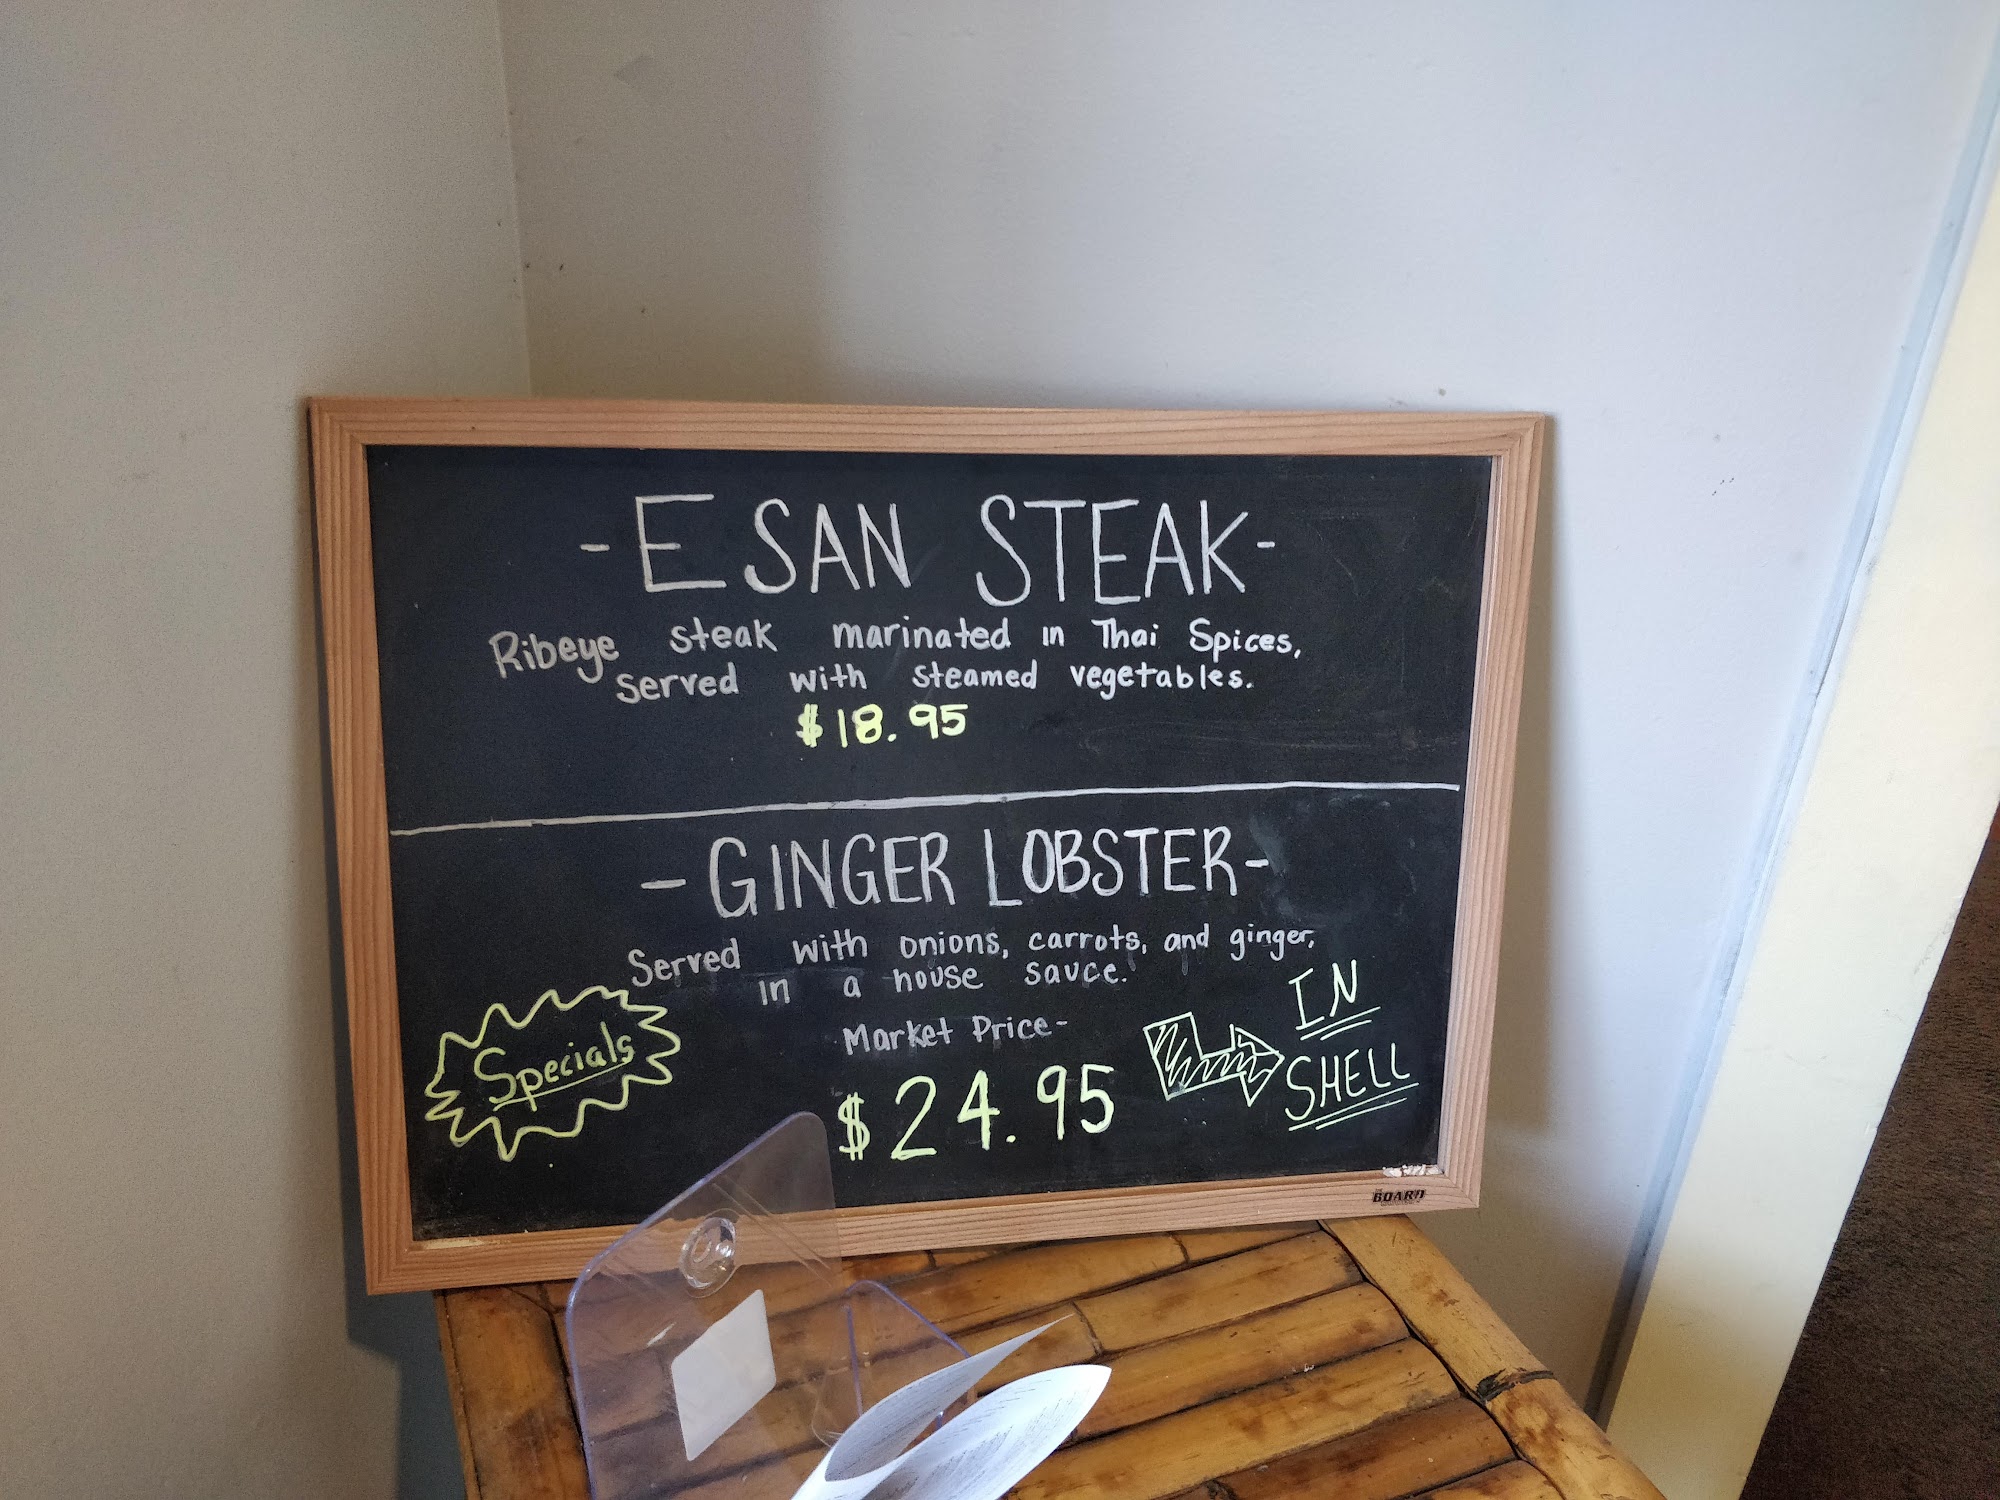 -ESAN STEAK-
Ribeye steak marinated in Thai Spices,
served with steamed vegetables.
$18.95
-GINGER LOBSTER-
Served with onions, carrots, and ginger,
in a house sauce.
Market Price-
$24.95
IN
SHELL
Specials
BOARD